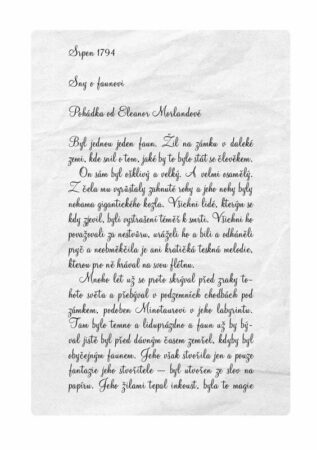 Srpen 1794
Sny o faunovi
Pohádka od Eleanor Morlandové
Byl jednou jeden faun. Žil na zámku v daleké
zemi, kde snil o tom, jaké by to bylo stát se člověkem.
On sám byl ošklivý a velký. A velmi osamělý.
Z čela mu vyrůstaly zahnuté rohy a jeho nohy byly
nohama gigantického kozla. Všichni lidé, kterým se
kdy zjevil, byli vystrašení téměř k smrti. Všichni ho
považovali za nestvůru, uráželi ho a bili a odháněli
pryč a neobměkčila je ani kratičká teskná melodie,
kterou pro ně hrával na svou flétnu.
Mnoho let už se proto skrýval před zraky to-
hoto světa a přebýval v podzemních chodbách pod
zámkem, podoben Minotaurovi v jeho labyrintu.
Tam bylo temno a liduprázdno a faun už by bý-
val jistě byl před dávným časem zemřel, kdyby byl
obyčejným faunem. Jeho však stvořila jen a pouze
fantazie jeho stvořitele — byl utvořen ze slov na
papíru. Jeho žilami tepal inkoust, byla to magie